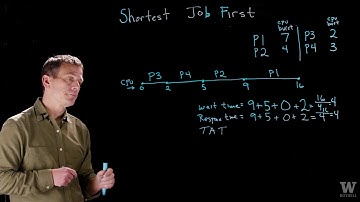 Shortest Job First
CPU burst
CPU burst
P1 7 P3 2
P2 4 P4 3
P3 P4 P2 P1
CPU
0 2 5 9 16
wait time = 9+5+0+2 = 16/4 = 4
Response time = 9+5+0+2 = 16/4 = 4
TAT
W
BOTHELL